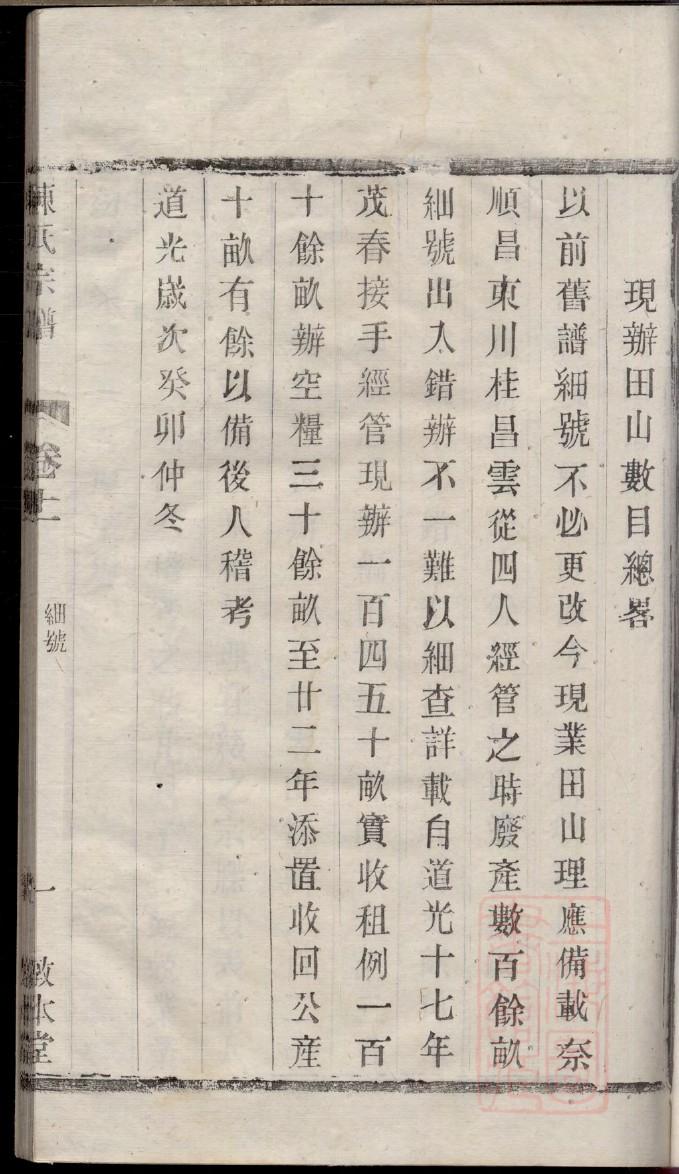 現辦田山數目總畧
以前舊譜細號不必更改今現業田山理應備載奈
順昌東川桂昌雲從四人經管之時廢產數百餘畝
細號出入錯辦不一難以細查詳載自道光十七年
茂春接手經管現辦一百四五十畝實收租例一百
十餘畝辦空糧三十餘畝至廿二年添置收回公產
十畝有餘以備後人稽考
道光歲次癸卯仲冬
陳氏宗譜
卷十一
細號
一
敦本堂